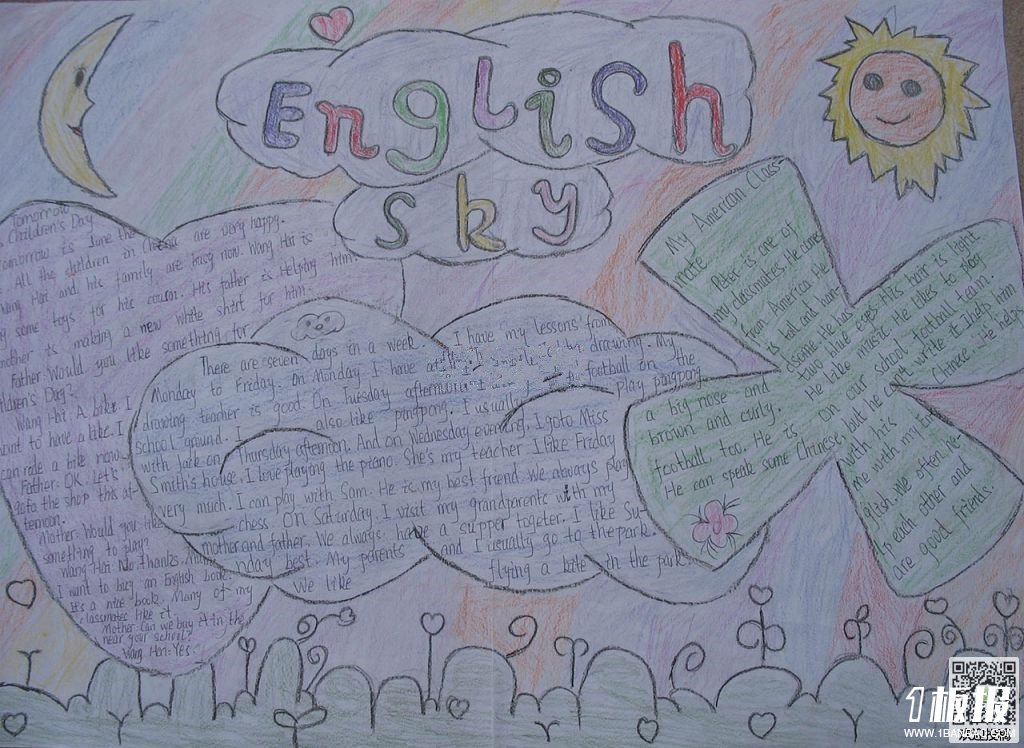 English
sky
Tomorrow
Children's Day
Tomorrow is June the
All the children in China are very happy.
Wang Hai and his family are busy now. Wang Hai is
some toys for his cousin. His father is Helping him.
mother is making a new white shirt for him.
Father: Would you like something for
Children's Day?
Wang Hai: A bike. I
want to have a bike. I
can ride a bike now.
Father: OK. Let's
goto the shop this af-
ternoon.
Mother: Would you like
something to play?
Wang Hai: No. thanks. Mum
I want to buy an English book.
It's a nice book. Many of my
classmates like it.
Mother: Can we buy it in the
near your school?
Wang Hai: Yes.
There are seven days in a week. I have my lessons from
Monday to Friday. On Monday I have drawing. My
drawing teacher is good. On Tuesday afternoon football on the
school around. I also like pingpong. I usually play pingpong
with Jack on Thursday afternoon. And on Wednesday evening, I goto Miss
Smith's house. I love playing the piano. She's my teacher I like Friday
very much. I can play with Sam. He is my best friend. We always play
chess. On Saturday. I visit my grandparents with my
mother and father. We always have a supper togeter. I like Su-
nday best. My parents and I usually go to the park.
We like flying a kite in the park.
My American Class-
mate
Peter is one of
my classmates. He comes
from America. He
is tall and han-
dsome. He has
two blue eyes. His hair is light
brown and curly.
a big nose and
He like music. He likes to play
football, too. He is on our school football team.
He can speak some Chinese, but he can't write it. I help him
with his Chinese. He helps
me with my En-
glish. We often he-
lp each other and
are good friends.
1板报
WWW.1BANBAO.COM